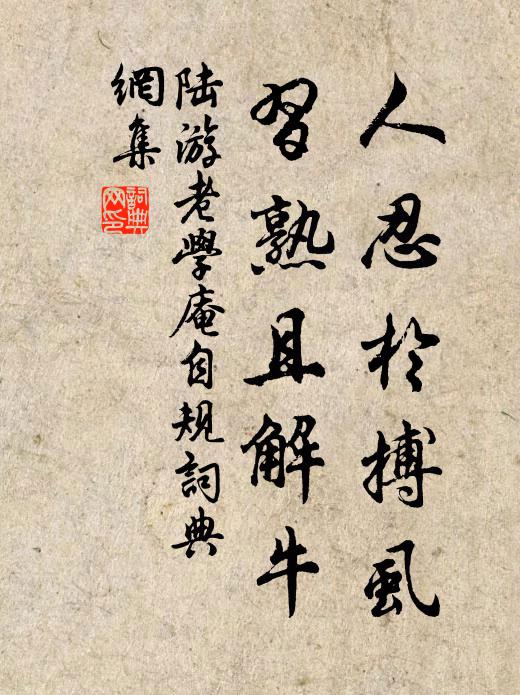 人忍於搏虱
習熟且解牛
陆游老學庵自规詞典
網集
詞典
网印